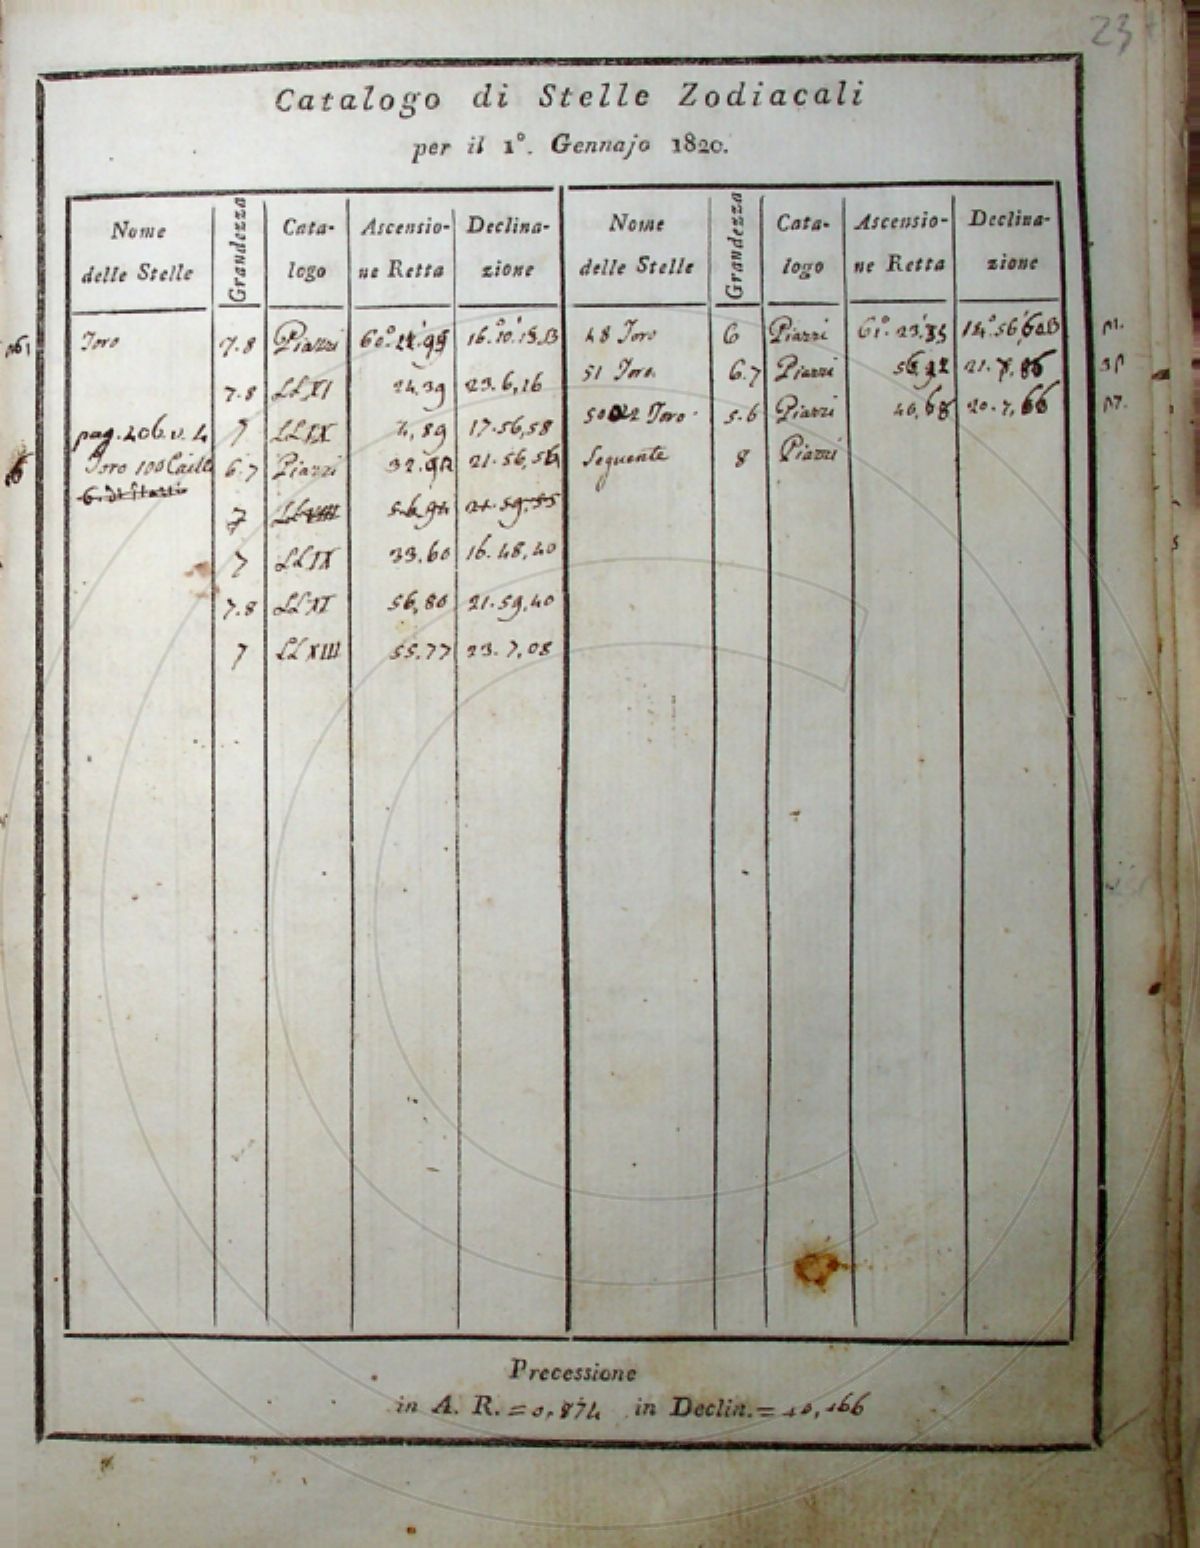 23
Catalogo di Stelle Zodiacali
per il 1°. Gennajo 1820.
Nome delle Stelle Grandezza Catalogo Ascensione Retta Declinazione Nome delle Stelle Grandezza Catalogo Ascensione Retta Declinazione
Toro 7.8 Piazzi 16.°10.'13.B 48 Toro 6 Piazzi 61°.23.'35 14.°56,'60.B
51 Toro 6.7 Piazzi 56,92
7.8 LLXI 24,39 23.6,16
Toro 5.6 Piazzi 40,68 20.7,66
pag. 206. v. 4 7 LLIX 4,89 17.56,58
Toro 100 Caille 6.7 Piazzi 32.92 21.56,56 Seguente 8 Piazzi
7 LLVIII 56,94 21.59,55
7 LLIX 33,60 16.48,40
7.8 LLXI 56,80 21.59,40
7 LLXIII 55.77 23.7,08
Precessione
in A. R. = 0,874 in Declin. = 10,166